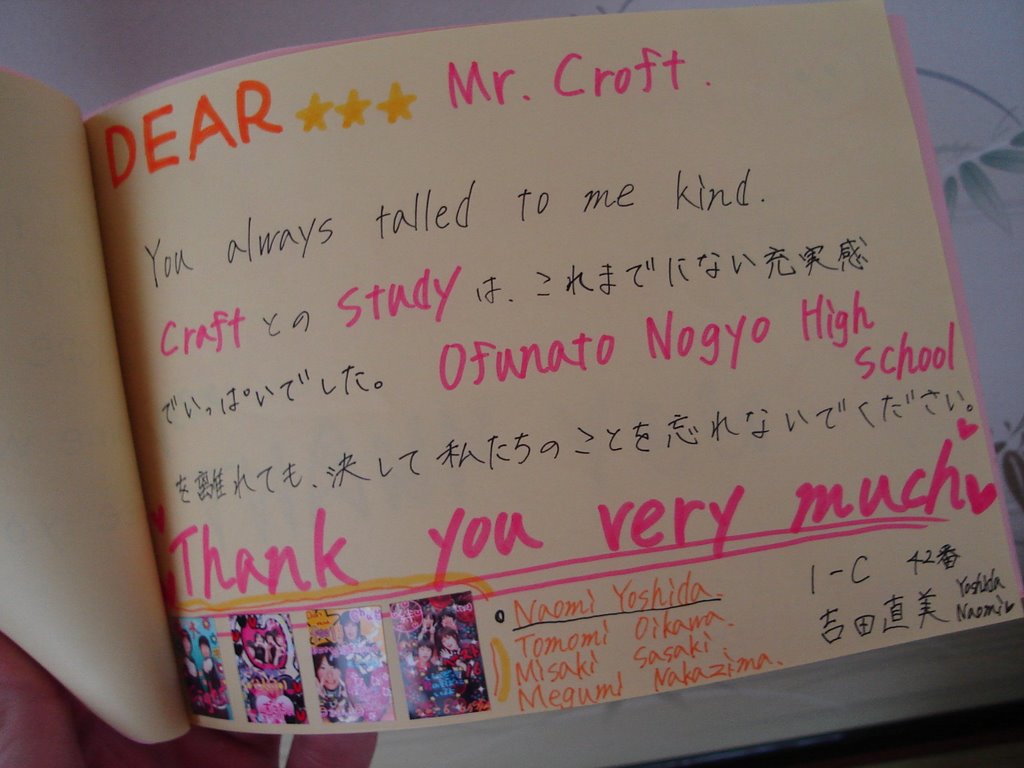 DEAR ★★★ Mr. Croft.
You always talled to me kind.
Craft との study は、これまでにない充実感
でいっぱいでした。 Ofunato Nogyo High
school
を離れても、決して私たちのことを忘れないでください。
Thank you very much
Naomi Yoshida.
Tomomi Oikawa.
Misaki Sasaki.
Megumi Nakazima.
1-C 42番
吉田直美 Yoshida
Naomi